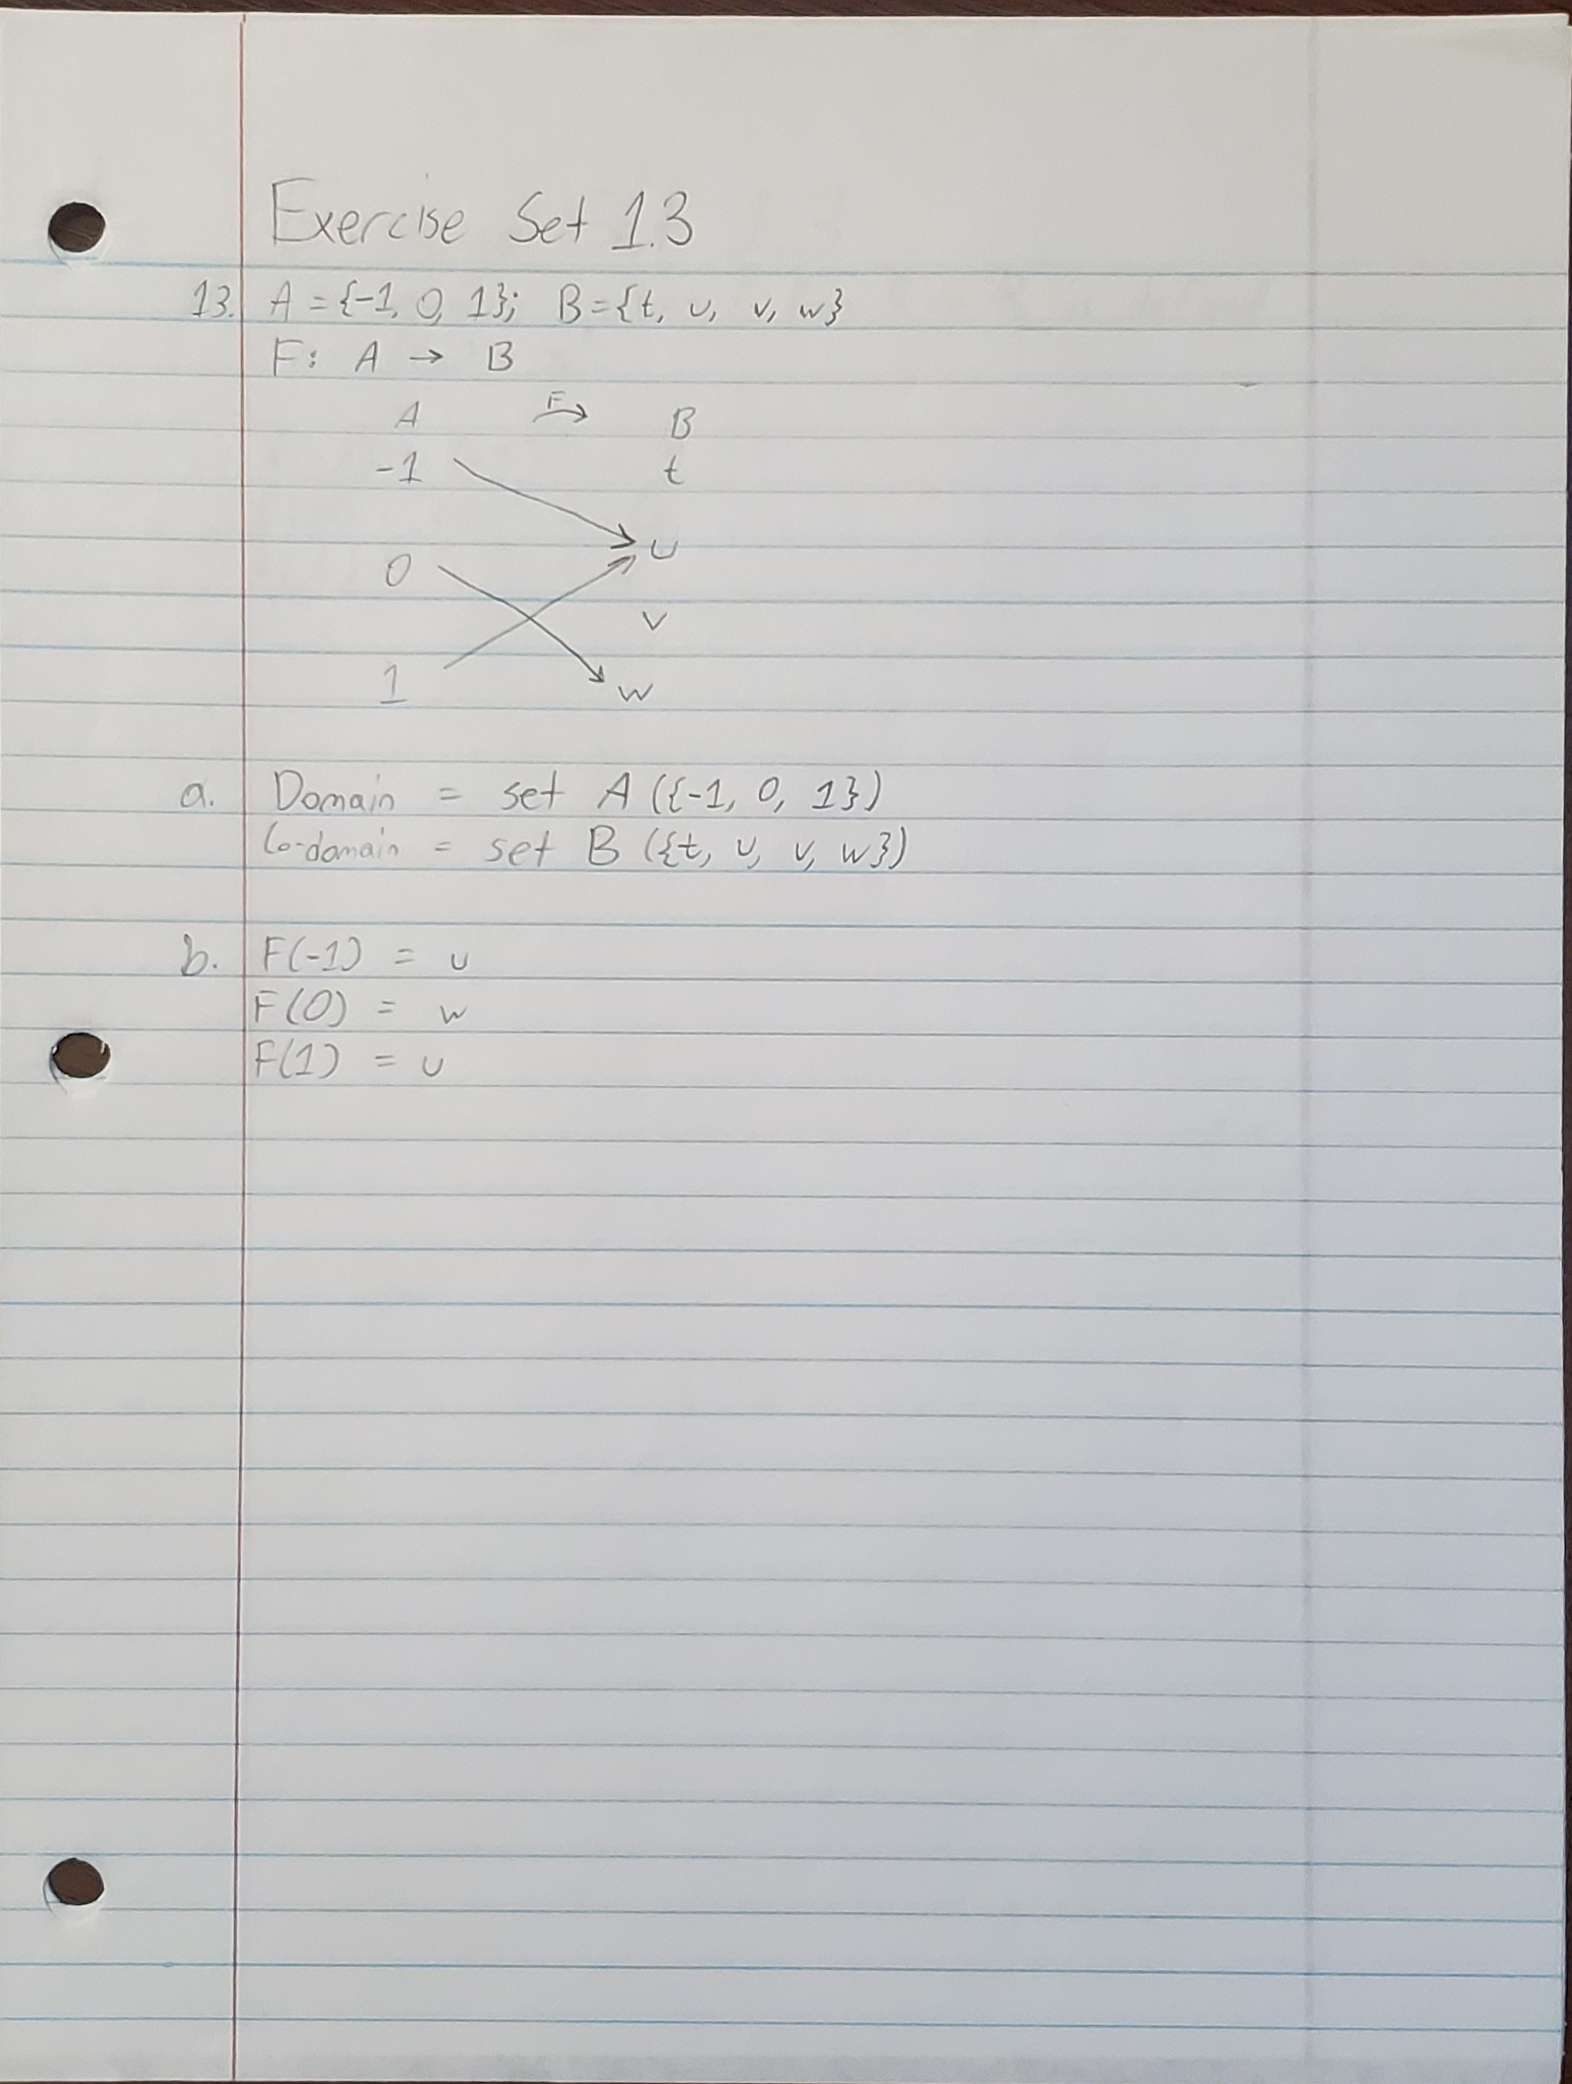 Exercise Set 1.3
13. A = {-1, 0, 1}; B = {t, u, v, w}
F: A → B
A F→ B
-1 t
u
0
v
1 w
a. Domain = set A ({-1, 0, 1})
Co-domain = set B ({t, u, v, w})
b. F(-1) = u
F(0) = w
F(1) = u